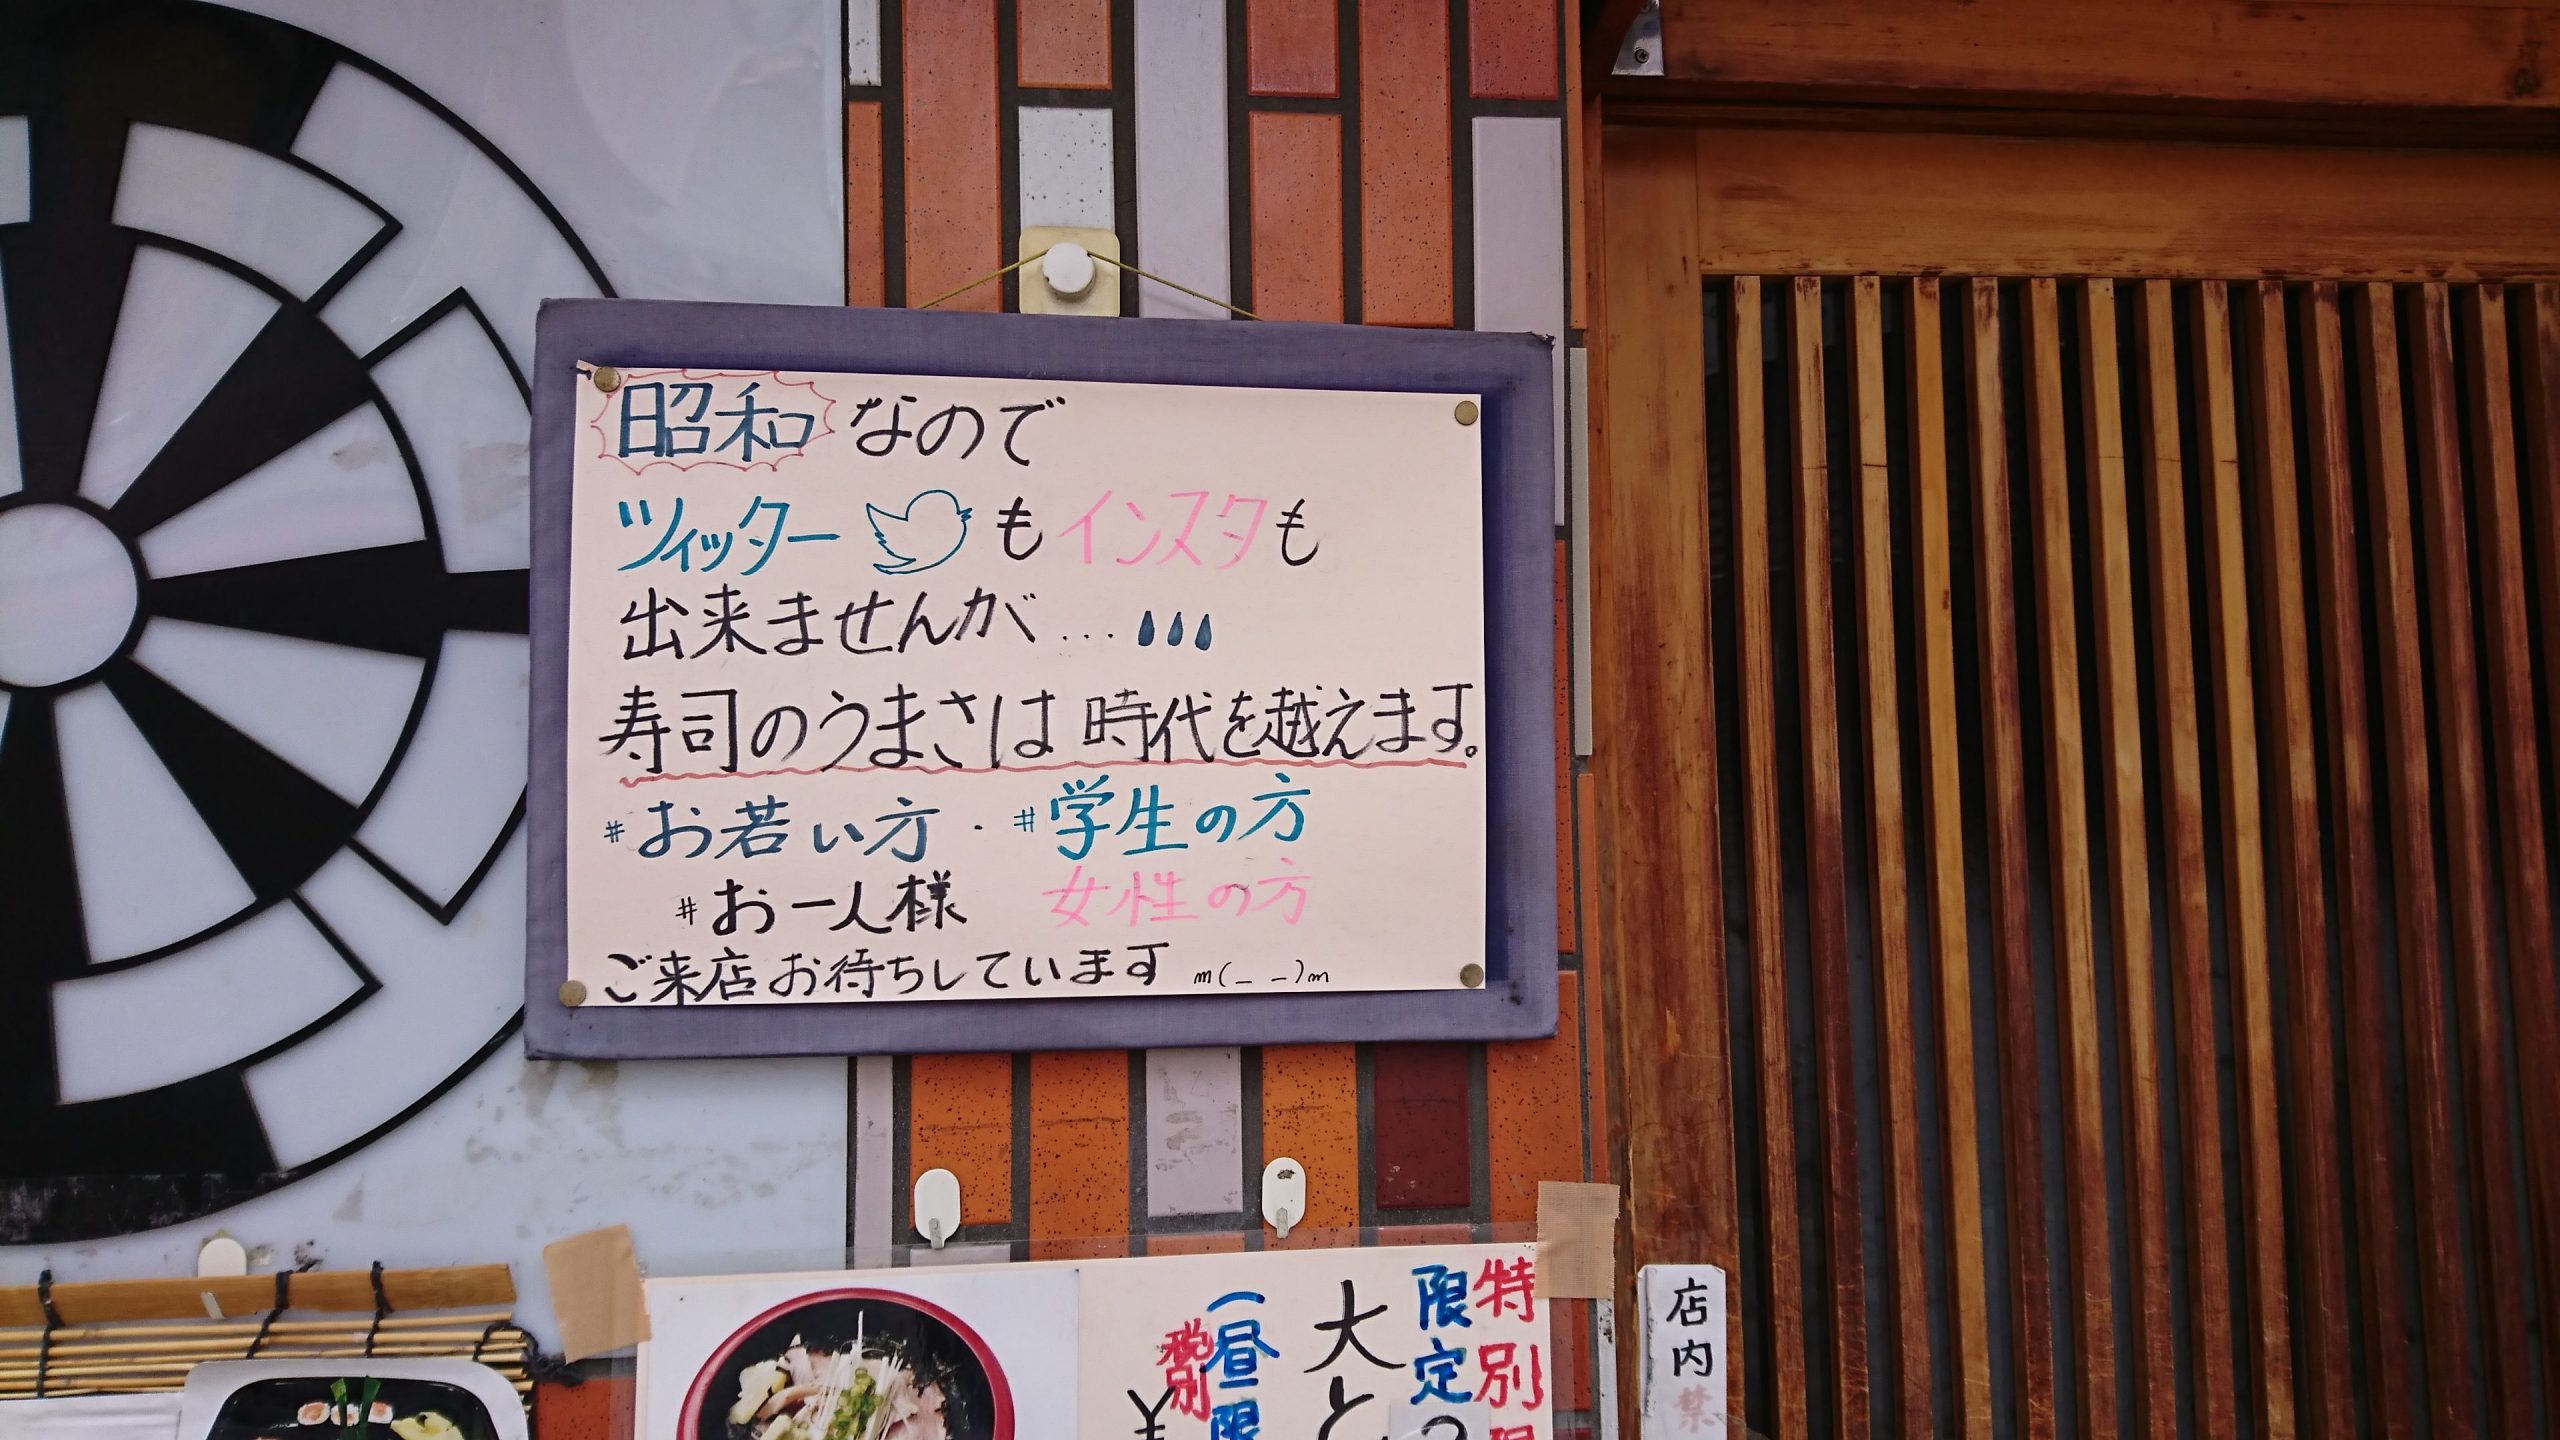 昭和なので
ツイッターもインスタも
出来ませんが...
寿司のうまさは時代を越えます。
#お若い方・#学生の方
#お一人様 女性の方
ご来店お待ちしています m(_ _)m
特別限
限定
大と
一昼限
税別
¥
店内禁